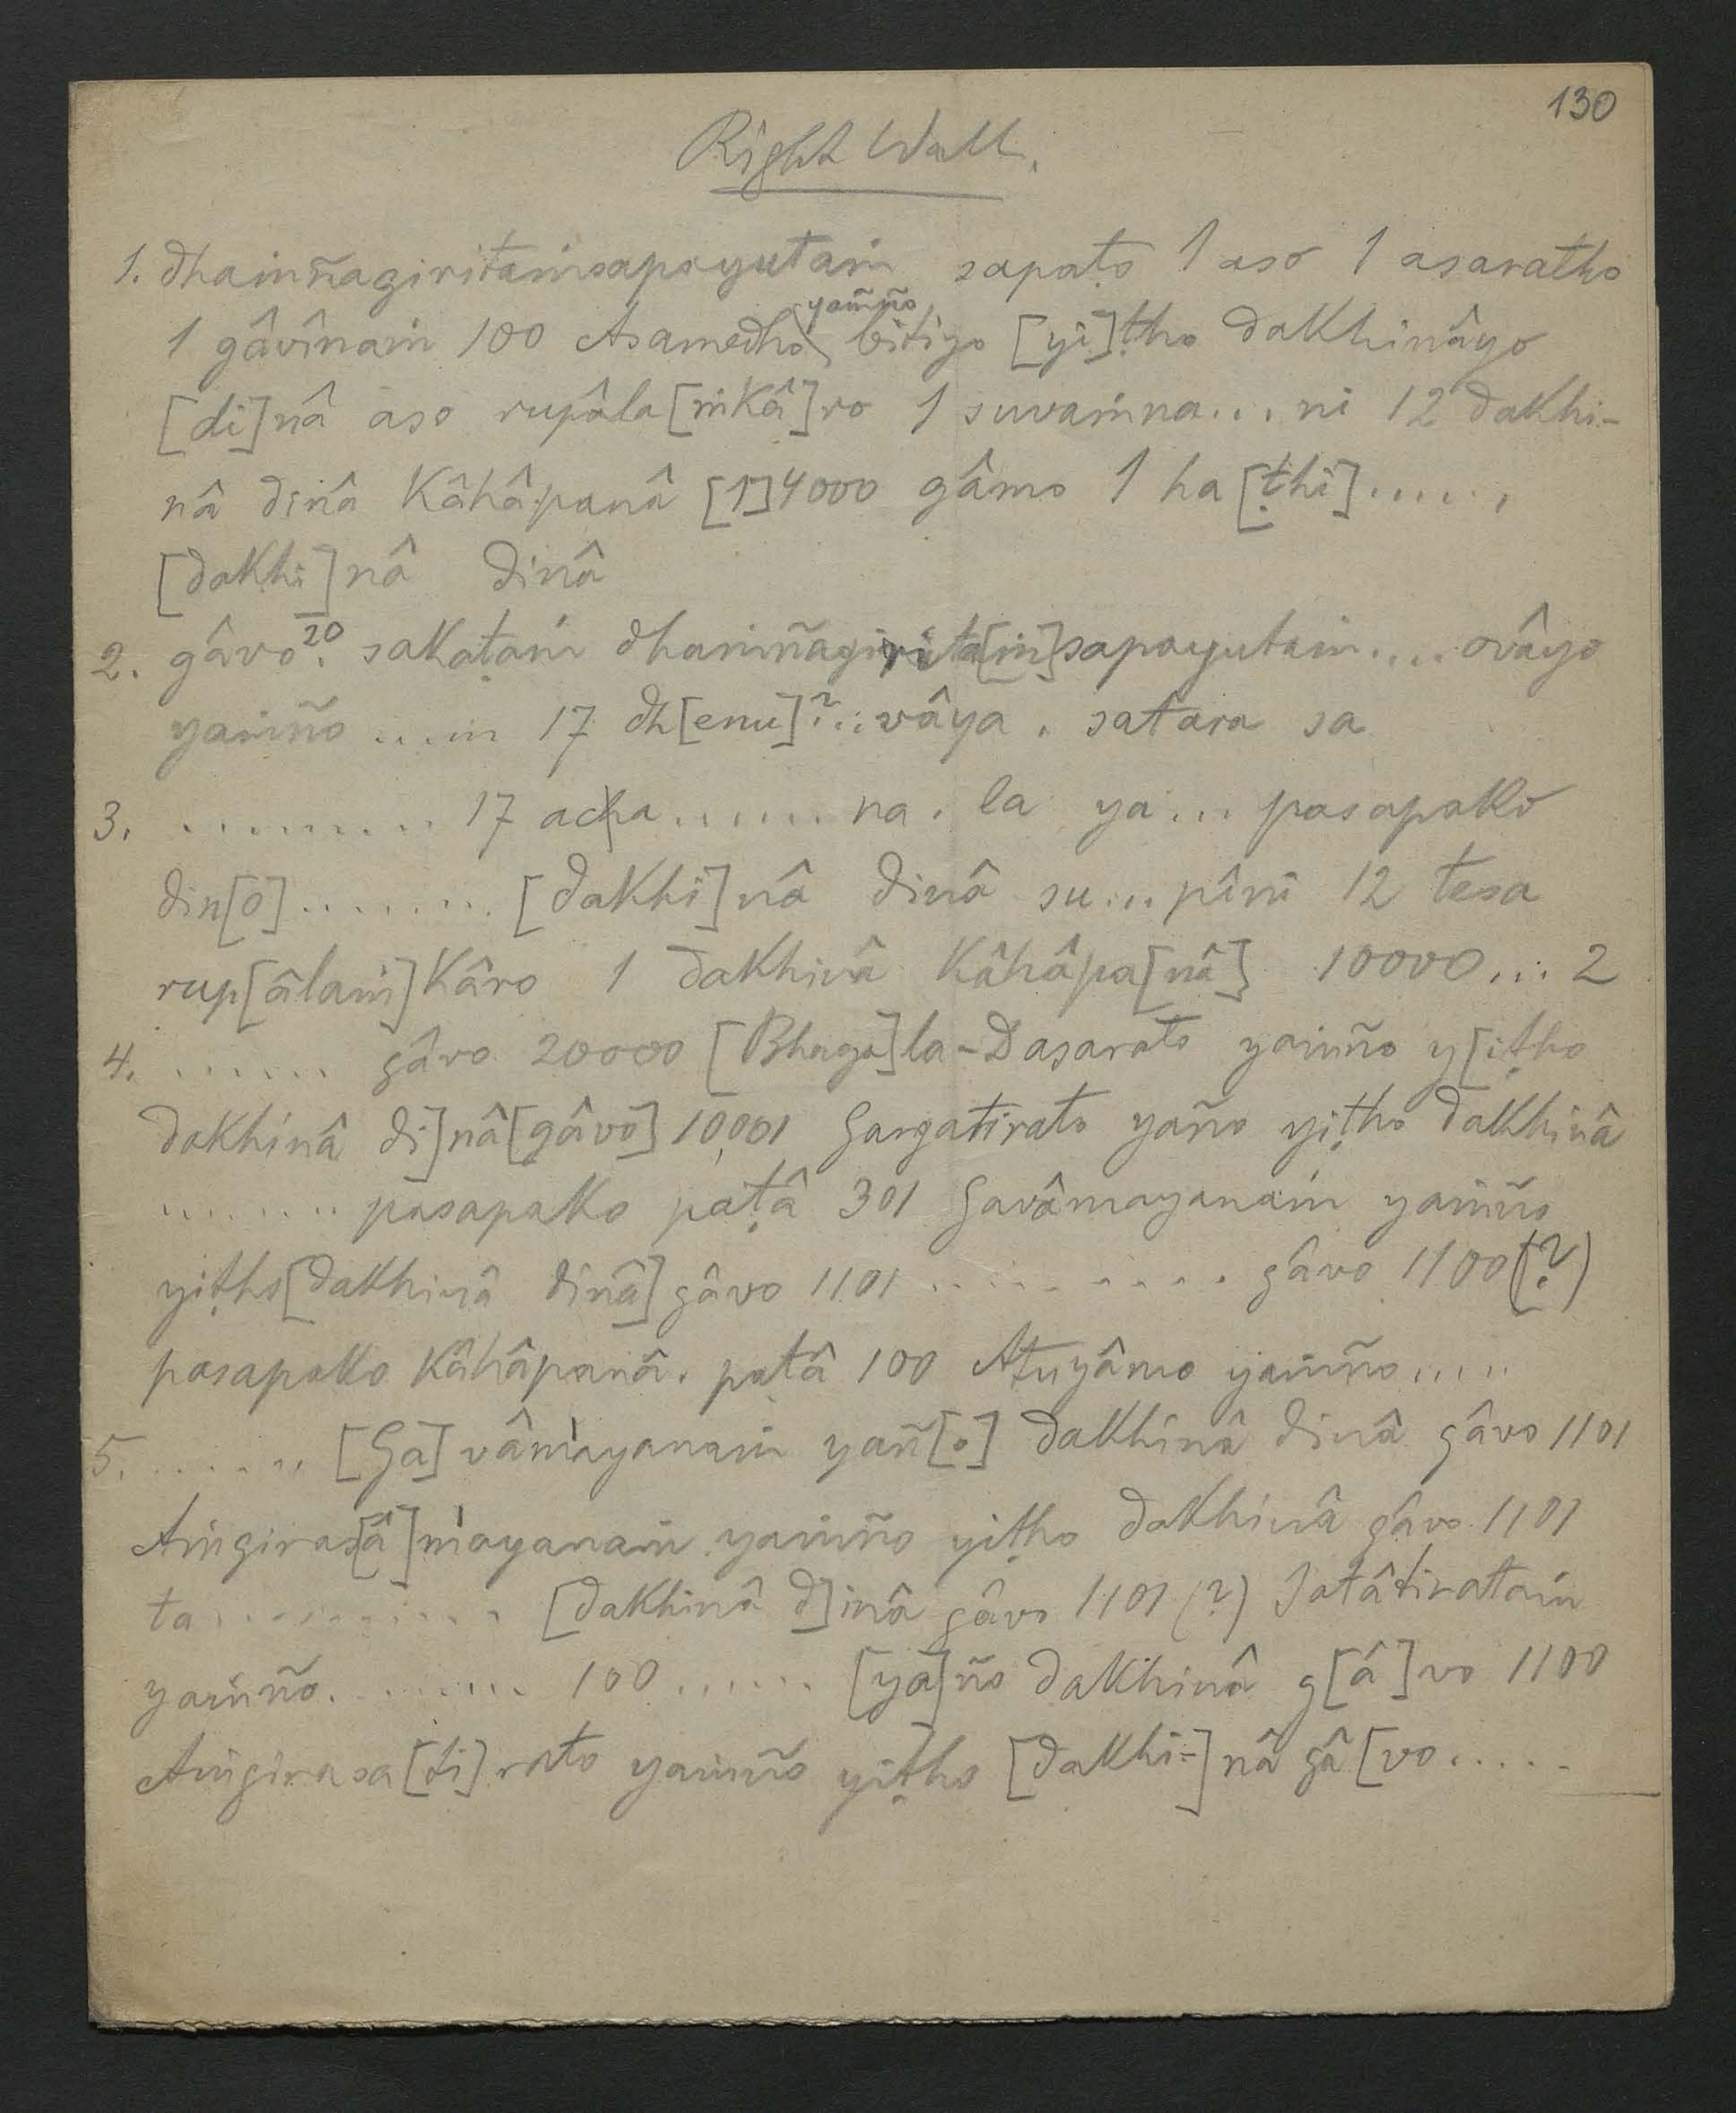 130
Right Wall.
1. dhaṁñagiritaṁsapayutaṁ sapaṭo 1 aso 1 asaratho
yaṁño
1 gâvînaṁ 100 Asamedho bitiyo [yi]ṭho dakhinâyo
[di]nâ aso rupâla[ṁkâ]ro 1 suvaṁna... ni 12 dakhi-
nâ dinâ kâhâpanâ [1]4000 gâmo 1 ha[ṭhi].....
[dakhi]nâ dinâ
20
2. gâvo . sakaṭaṁ dhaṁñagirita[ṁ]sapayutaṁ.... ovâyo
yaṁño .....ṁ 17 dh[enu]?...vâya . satara sa
3. .......... 17 acha....... na . la ya... pasapako
din[o]......... [dakhi]nâ dinâ su... pîni 12 tesa
rup[âlaṁ]kâro 1 dakhinâ kâhâpa[nâ] 10000... 2
4. ....... gâvo 20000 [Bhaga]la-Dasarato yaṁño y[iṭho
dakhinâ di]nâ[gâvo] 10001 Gargatirato yaño yiṭho dakhinâ
....... pasapako paṭâ 301 Gavâmayanaṁ yaṁño
yiṭho[dakhinâ dinâ] gâvo 1101 .......... gâvo 1100(?)
pasapako kâhâpanâ. paṭâ 100 Atuyâmo yaṁño.....
5. ....... [Ga]vâmayanaṁ yañ[o] dakhinâ dinâ gâvo 1101
Aṁgiras[â]mayanaṁ yaṁño yiṭho dakhinâ gâvo 1101
ta............ [dakhinâ d]inâ gâvo 1101 (?) Satâtirataṁ
yaṁño......... 100....... [ya]ño dakhinâ g[â]vo 1100
Aṁgirasa[ti]rato yaṁño yiṭho [dakhi-]nâ gâ[vo.....